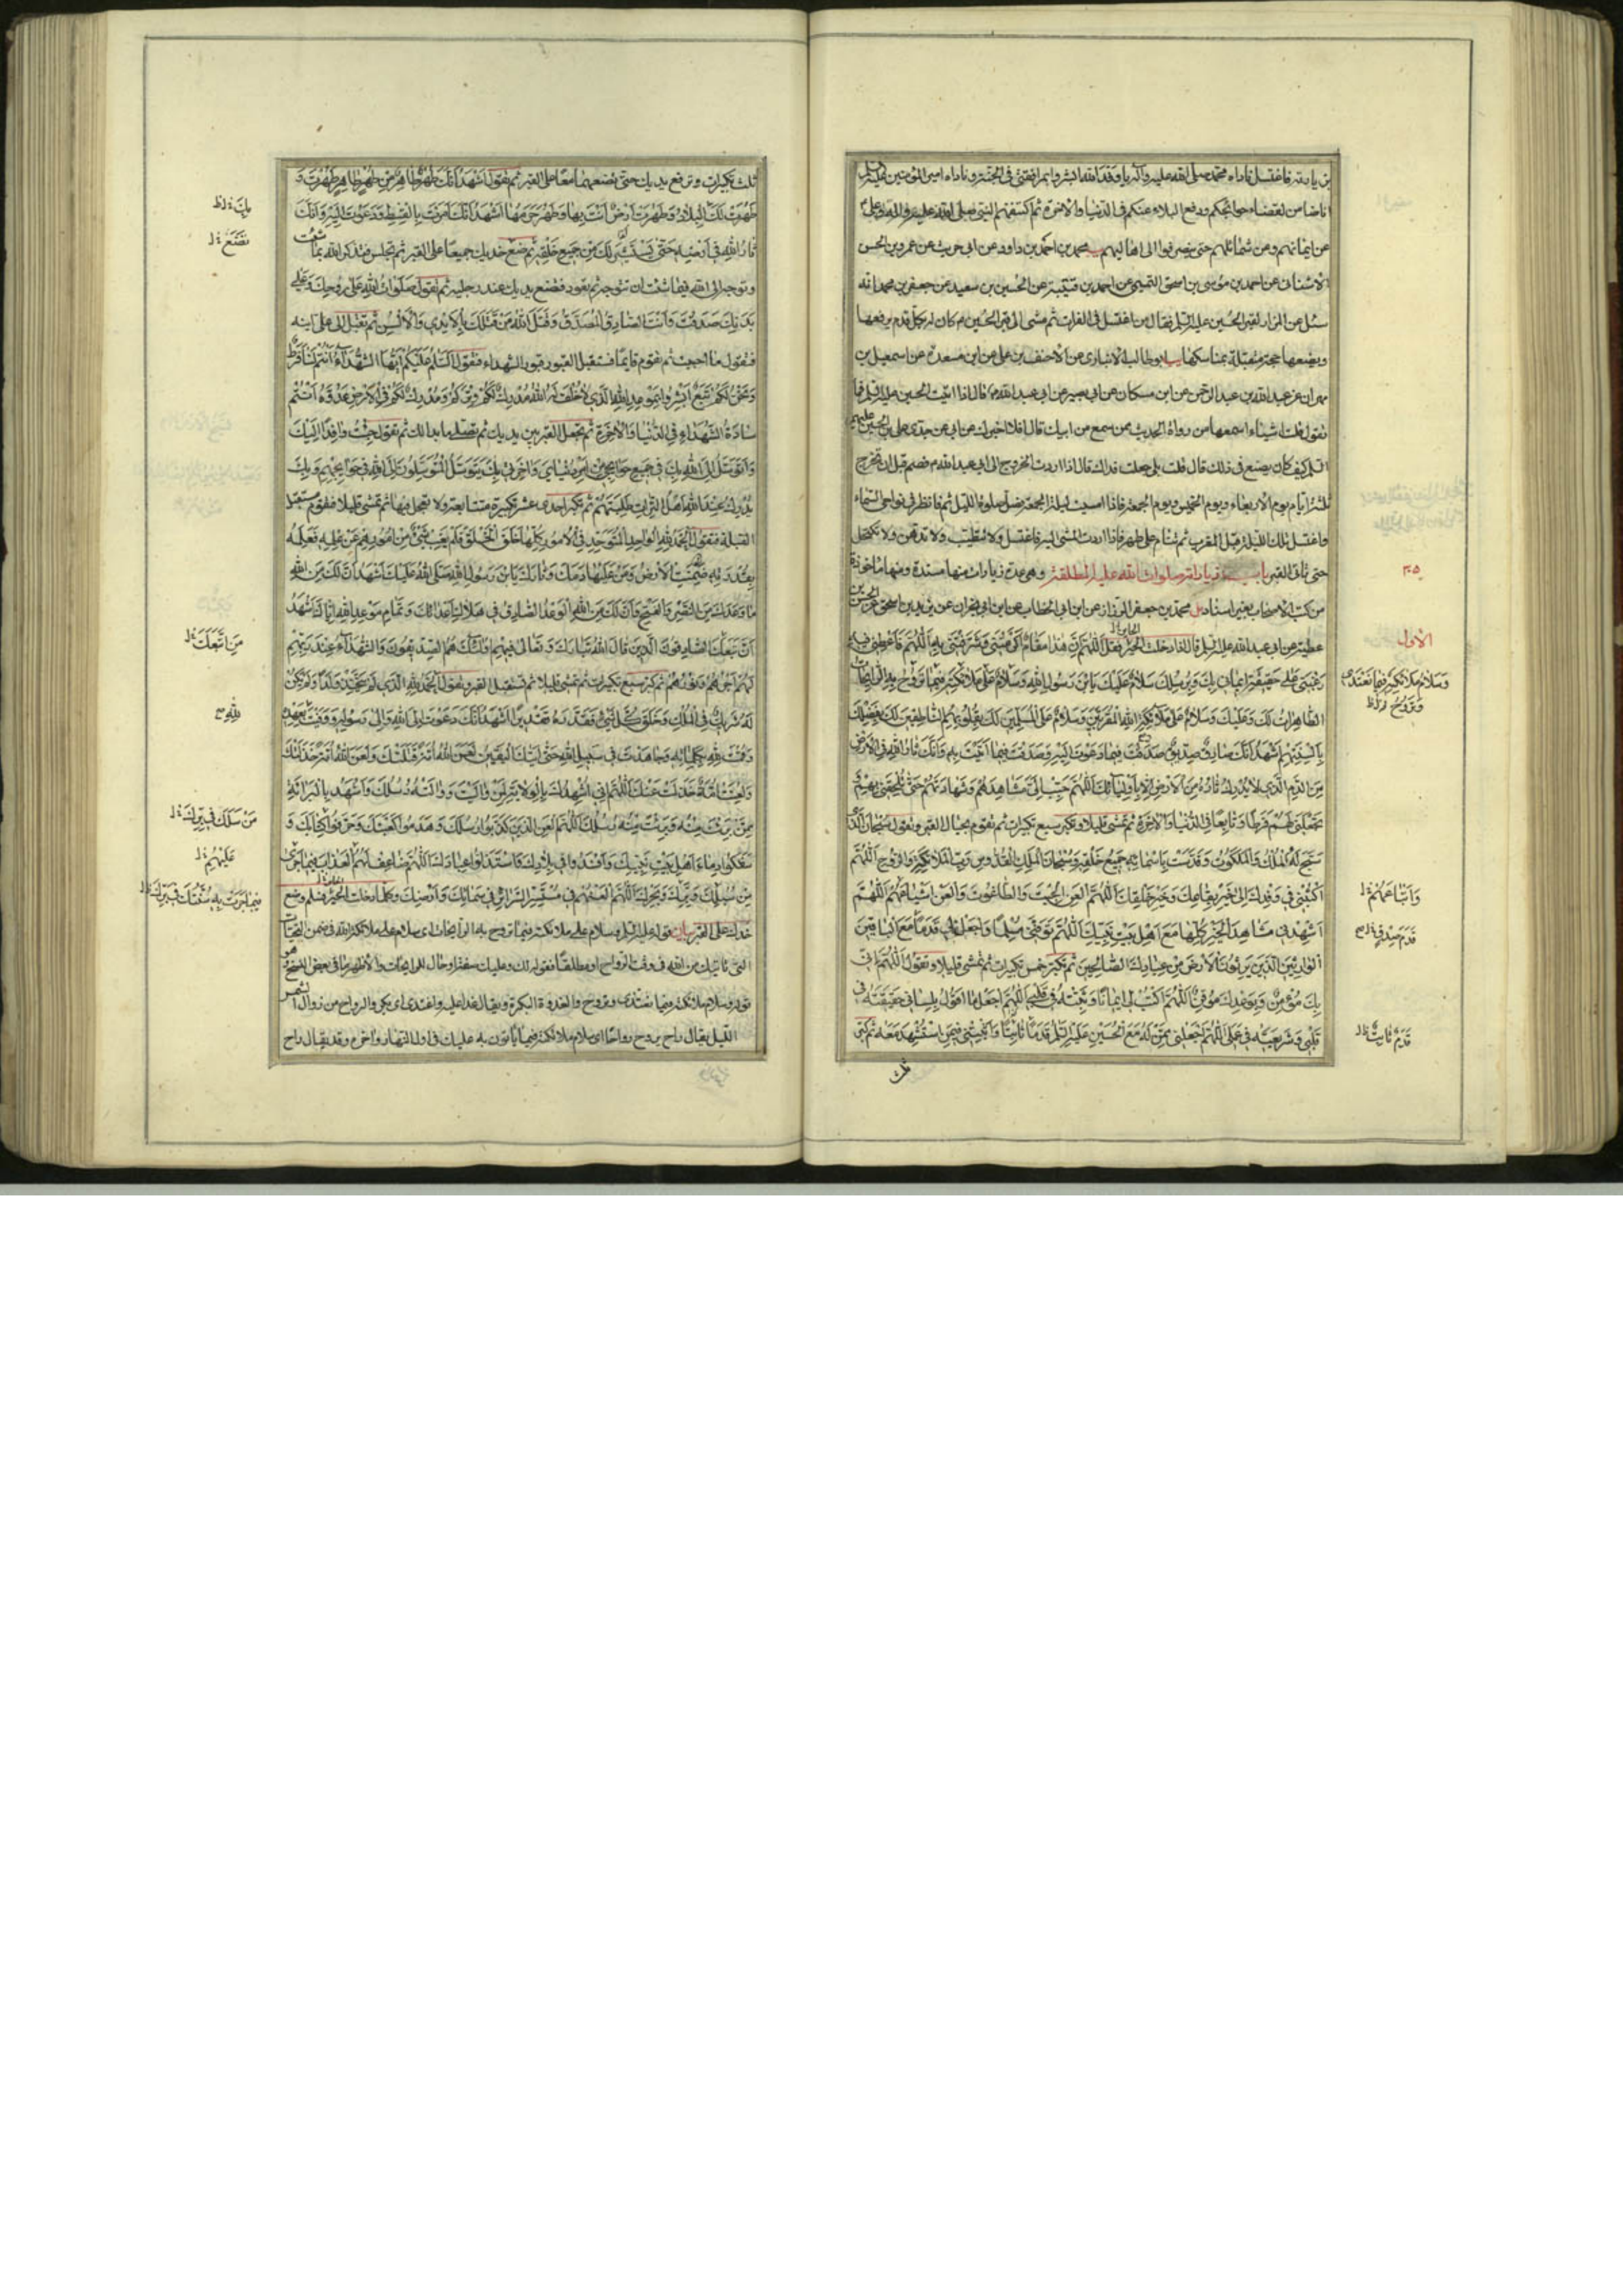 بن يادته فاغتسل ناداه محمد صلى الله عليه وآله يا وفد الله ابشروا بمرافقتي في الجنة وناداه امير المؤمنين عليه السلام
انا ضامن لقضاء حوائجكم ودفع البلاء عنكم في الدنيا والآخرة ثم اكتنفهم النبي صلى الله عليه وآله وعلى
عن ايمانهم وعن شمائلهم حتى ينصرفوا الى اهاليهم محمد بن احمد بن داود عن ابى عن عمرو بن الحسن
الاشنانى عن احمد بن موسى بن اسحق التميمى عن احمد بن قتيبة عن الحسين بن سعيد عن جعفر بن محمد انه
سئل عن الزائر لقبر الحسين عليه السلم فقال من اغتسل في الفرات ثم مشى الى قبر الحسين م كان له بكل قدم يرفعها
ويضعها حجة متقبلة بمناسكها ابو طالب الانبارى عن الاحنف بن على عن ابن مسعدة عن اسمعيل بن
مهران عن عبد الله بن عبد الرحمن عن ابن مسكان عن ابى بصير عن ابى عبد الله م قال اذا اتيت الحسين عليه السلم فما
تقول قلت اشياء اسمعها من رواة الحديث ممن سمع من ابيك قال افلا اخبرك عن ابى عن جدى على بن الحسين عليهم
السلم كيف كان يصنع في ذلك قال قلت بلى جعلت فداك قال اذا اردت الخروج الى ابى عبد الله م فصم قبل ان تخرج
ثلثة ايام يوم الاربعاء ويوم الخميس ويوم الجمعة فاذا امسيت ليلة الجمعة فصل صلوة الليل ثم قم فانظر في نواحى السماء
واغتسل تلك الليلة قبل المغرب ثم تنام على طهر فاذا اردت المشى اليه فاغتسل ولا تطيب ولا تدهن ولا تكتحل
حتى تأتى القبر باب زياراته صلوات الله عليه المطلقة وهى عدة زيارات منها مسندة ومنها مأخوذة
٣٥
من كتب الاصحاب بغير اسناد مل محمد بن جعفر الرزاز عن ابن ابى الخطاب عن ابن ابى نجران عن يزيد بن اسحق عن الحسن بن
الاول
عطية عن ابى عبد الله عليه السلم قال اذا دخلت الحير فقل اللهم ان هذا مقام اكرمتنى وشرفتنى به اللهم فاعطنى فيه
رغبتى على حقيقة ايمانى بك وبرسلك سلام عليك يابن رسول الله وسلام على ملائكته فيما تروح به الرايحات
وسلام ملائكته فيما تغتدى
وتروح
الطاهرات لك وعليك وسلام على ملائكة الله المقربين وسلام على المسلمين لك بقلوبهم الناطقين لك بفضلك
بالسنتهم اشهد انك صادق صديق صدقت فيما دعوت اليه وصدقت فيما اتيت به وانك ثار الله في الارض
من الدم الذى لا يدرك ثاره من الارض الا باوليائك اللهم حبب الى مشاهدهم وشهادتهم حتى تلحقنى بهم و
تجعلنى لهم فرطا وتابعا في الدنيا والآخرة ثم تمشى قليلا وتكبر سبع تكبيرات ثم تقوم بحيال القبر وتقول سبحان الذى
سبح له الملك والملكوت وقدست باسمائه جميع خلقه وسبحان الملك القدوس رب الملائكة والروح اللهم
اكتبنى في وفدك الى خير بقاعك وخير خلقك اللهم العن الجبت والطاغوت والعن اشياعهم اللهم
واتباعهم
اشهدنى مشاهد الخير كلها مع اهل بيت نبيك اللهم توفنى مسلما واجعل لى قدما مع الباقين
قدم صدق
الوارثين الذين يرثون الارض من عبادك الصالحين ثم تكبر خمس تكبيرات ثم تمشى قليلا وتقول اللهم انى
بك مؤمن وبوعدك موقن اللهم اكتب لى ايمانا وثبته في قلبى اللهم اجعل ما اقول بلسانى حقيقته في
قلبى وشريعته في عملى اللهم اجعلنى ممن له مع الحسين عليه السلم قدما ثابتا واثبتنى فيمن استشهد معه ثم كبر
قدم ثابت
ثلث
ثلث تكبيرات وترفع يديك حتى تضعهما معا على القبر ثم تقول اشهد انك طهر طاهر من طهر طاهر طهرت و
طهرت لك البلاد وطهرت ارض انت بها وطهر حرمها اشهد انك امرت بالقسط ودعوت اليه وانك
بك
ثار الله في ارضه حتى يستثير لك من جميع خلقه ثم ضع خديك جميعا على القبر ثم تجلس فتذكر الله بما شئت
تضع
وتوجه الى الله فيما شئت ان تتوجه ثم تعود فتضع يديك عند رجليه ثم تقول صلوات الله على روحك وعلى
بدنك صدقت وانت الصادق المصدق وقتل الله من قتلك بالايدى والالسن ثم تقبل الى على ابنه
فتقول ما احببت ثم تقوم قائما فتستقبل القبور قبور الشهداء فتقول السلم عليكم ايها الشهداء انتم لنا فرط
ونحن لكم تبع ابشروا بموعد الله الذى لا خلف له الله مدرك لكم وتركم ومدرك لكم في الارض عدوه انتم
سادة الشهداء في الدنيا والآخرة ثم تجعل القبر بين يديك ثم تصلى ما بدا لك ثم تقول جئت وافدا اليك
واتوسل الى الله بك في جميع حوائجى من امر دنياى وآخرتى بك يتوسل المتوسلون الى الله في حوائجهم وبك
يدرك عند الله اهل الترات طلبتهم ثم تكبر احدى عشر تكبيرة متتابعة ولا تعجل فيها ثم تمشى قليلا فتقوم مستقبل
القبلة فتقول الحمد لله الواحد المتوحد في الامور كلها خلق الخلق فلم يغب شئ من امورهم عن علمه فعلمه
بقدرته ضمنت الارض ومن عليها دمك وثارك يابن رسول الله صلى الله عليك اشهد ان لك من الله
ما وعدك من النصر والفتح وان لك من الله الوعد الصادق في هلاك اعدائك وتمام موعد الله اياك اشهد
ان من تبعك الصادقون الذين قال الله تبارك وتعالى فيهم اولئك هم الصديقون والشهداء عند ربهم
من اتبعك
لهم اجرهم ونورهم ثم كبر سبع تكبيرات ثم تمشى قليلا ثم تستقبل القبر وتقول الحمد لله الذى لم يتخذ ولدا ولم يكن
له شريك في الملك وخلق كل شئ فقدره تقديرا اشهد انك دعوت الى الله والى رسوله ووفيت بعهده
لله
وقمت لله بكلماته وجاهدت في سبيل الله حتى اتيك اليقين لعن الله امة قتلتك ولعن الله امة خذلتك
ولعنت امة خذلت عنك اللهم انى اشهدك بالولاية لمن واليت ووالته رسلك واشهد بالبراءة
ممن برئت منه وبرئت منه رسلك اللهم العن الذين كذبوا رسلك وهدموا كعبتك وحرفوا كتابك و
من سلك في
سفكوا دماء اهل بيت نبيك وافسدوا في بلادك واستذلوا عبادك اللهم ضاعف لهم العذاب فيما جرى
عليهم
من سبلك وبرك وبحرك اللهم العنهم في مستسر السرائر في سمائك وارضك وكلما دخلت الحير فسلم وضع
فيما جرت به سنتك في برك
خدك على القبر بيان قوله عليه السلم وسلام على ملائكته فيما تروح به الرايحات اى سلام على ملائكة الله في ضمن التحيات
التى تأتيك من الله في وقت الرواح او مطلقا فقوله لك وعليك صفة او حال للرايحات والاظهر ما في بعض النسخ هو
قوله وسلام ملائكته فيما تغتدى وتروح والغدوة البكرة ويقال غدا عليه واغتدى اى بكر والرواح من زوال الشمس
الى الليل يقال راح يروح رواحا اى سلام ملائكته فيما يأتون به عليك في اول النهار وآخره وقد يقال راح